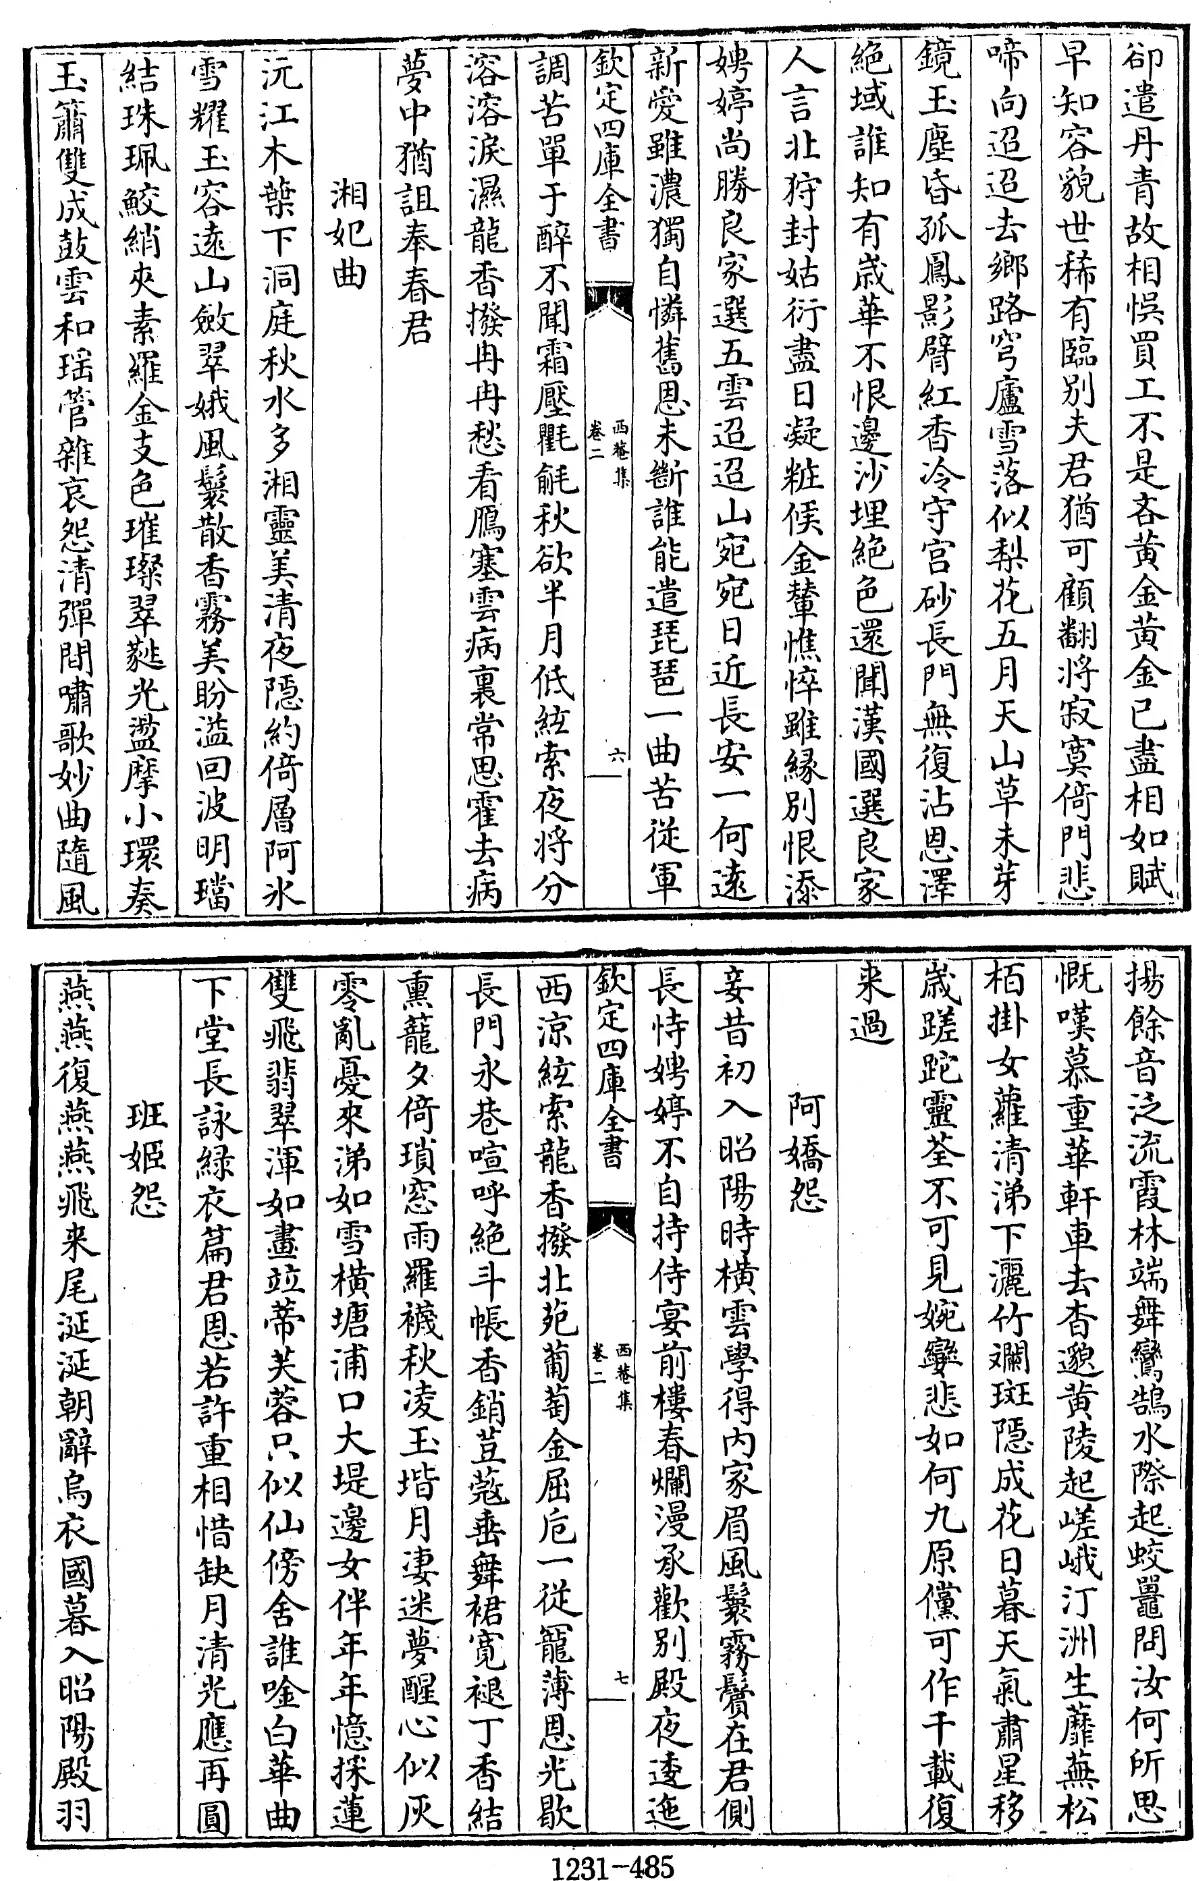 卻遣丹青故相悞買工不是吝黃金黃金已盡相如賦
早知容貌世稀有臨别夫君猶可顧翻將寂寞倚門悲
啼向迢迢去鄉路穹廬雪落似梨花五月天山草未芽
鏡玉塵昏孤鳳影臂紅香冷守宫砂長門無復沾恩澤
絶域誰知有歳華不恨邊沙埋絶色還聞漢國選良家
人言北狩封姑衍盡日凝粧候金輦憔悴雖縁别恨添
娉婷尚勝良家選五雲迢迢山宛宛日近長安一何遠
新愛雖濃獨自憐舊恩未斷誰能遣琵琶一曲苦從軍
欽定四庫全書
西菴集
卷二
六
調苦單于醉不聞霜壓氍毹秋欲半月低絃索夜將分
溶溶淚濕龍香撥冉冉愁看鴈塞雲病裏常思霍去病
夢中猶詛奉春君
湘妃曲
沅江木葉下洞庭秋水多湘靈美清夜隠約倚層阿氷
雪耀玉容逺山斂翠娥風鬟散香霧美盼溢回波明璫
結珠珮鮫綃夾素羅金支色璀璨翠蕤光盪摩小環奏
玉簫雙成鼓雲和瑶管雜哀怨清彈間嘯歌妙曲隨風
揚餘音泛流霞林端舞鸞鵠水際起蛟鼉問汝何所思
慨嘆慕重華軒車去杳邈黄陵起嵯峨汀洲生蘼蕪松
栢掛女蘿清涕下灑竹斕斑隠成花日暮天氣肅星移
歳蹉跎靈荃不可見婉孌悲如何九原儻可作千載復
来過
阿嬌怨
妾昔初入昭陽時横雲學得内家眉風鬟霧鬢在君側
長恃娉婷不自持侍宴前樓春爛漫承歡别殿夜逶迤
欽定四庫全書
西菴集
卷二
七
西凉絃索龍香撥北苑葡萄金屈卮一從寵薄恩光歇
長門永巷喧呼絶斗帳香銷荳蔻垂舞裙寛褪丁香結
熏籠夕倚瑣窓雨羅襪秋凌玉堦月凄迷夢醒心似灰
零亂憂來涕如雪横塘浦口大堤邊女伴年年憶採蓮
雙飛翡翠渾如畫竝蒂芙蓉只似仙傍舍誰唫白華曲
下堂長詠緑衣篇君恩若許重相惜缺月清光應再圓
班姬怨
燕燕復燕燕飛来尾涎涎朝辭烏衣國暮入昭陽殿羽
1231-485